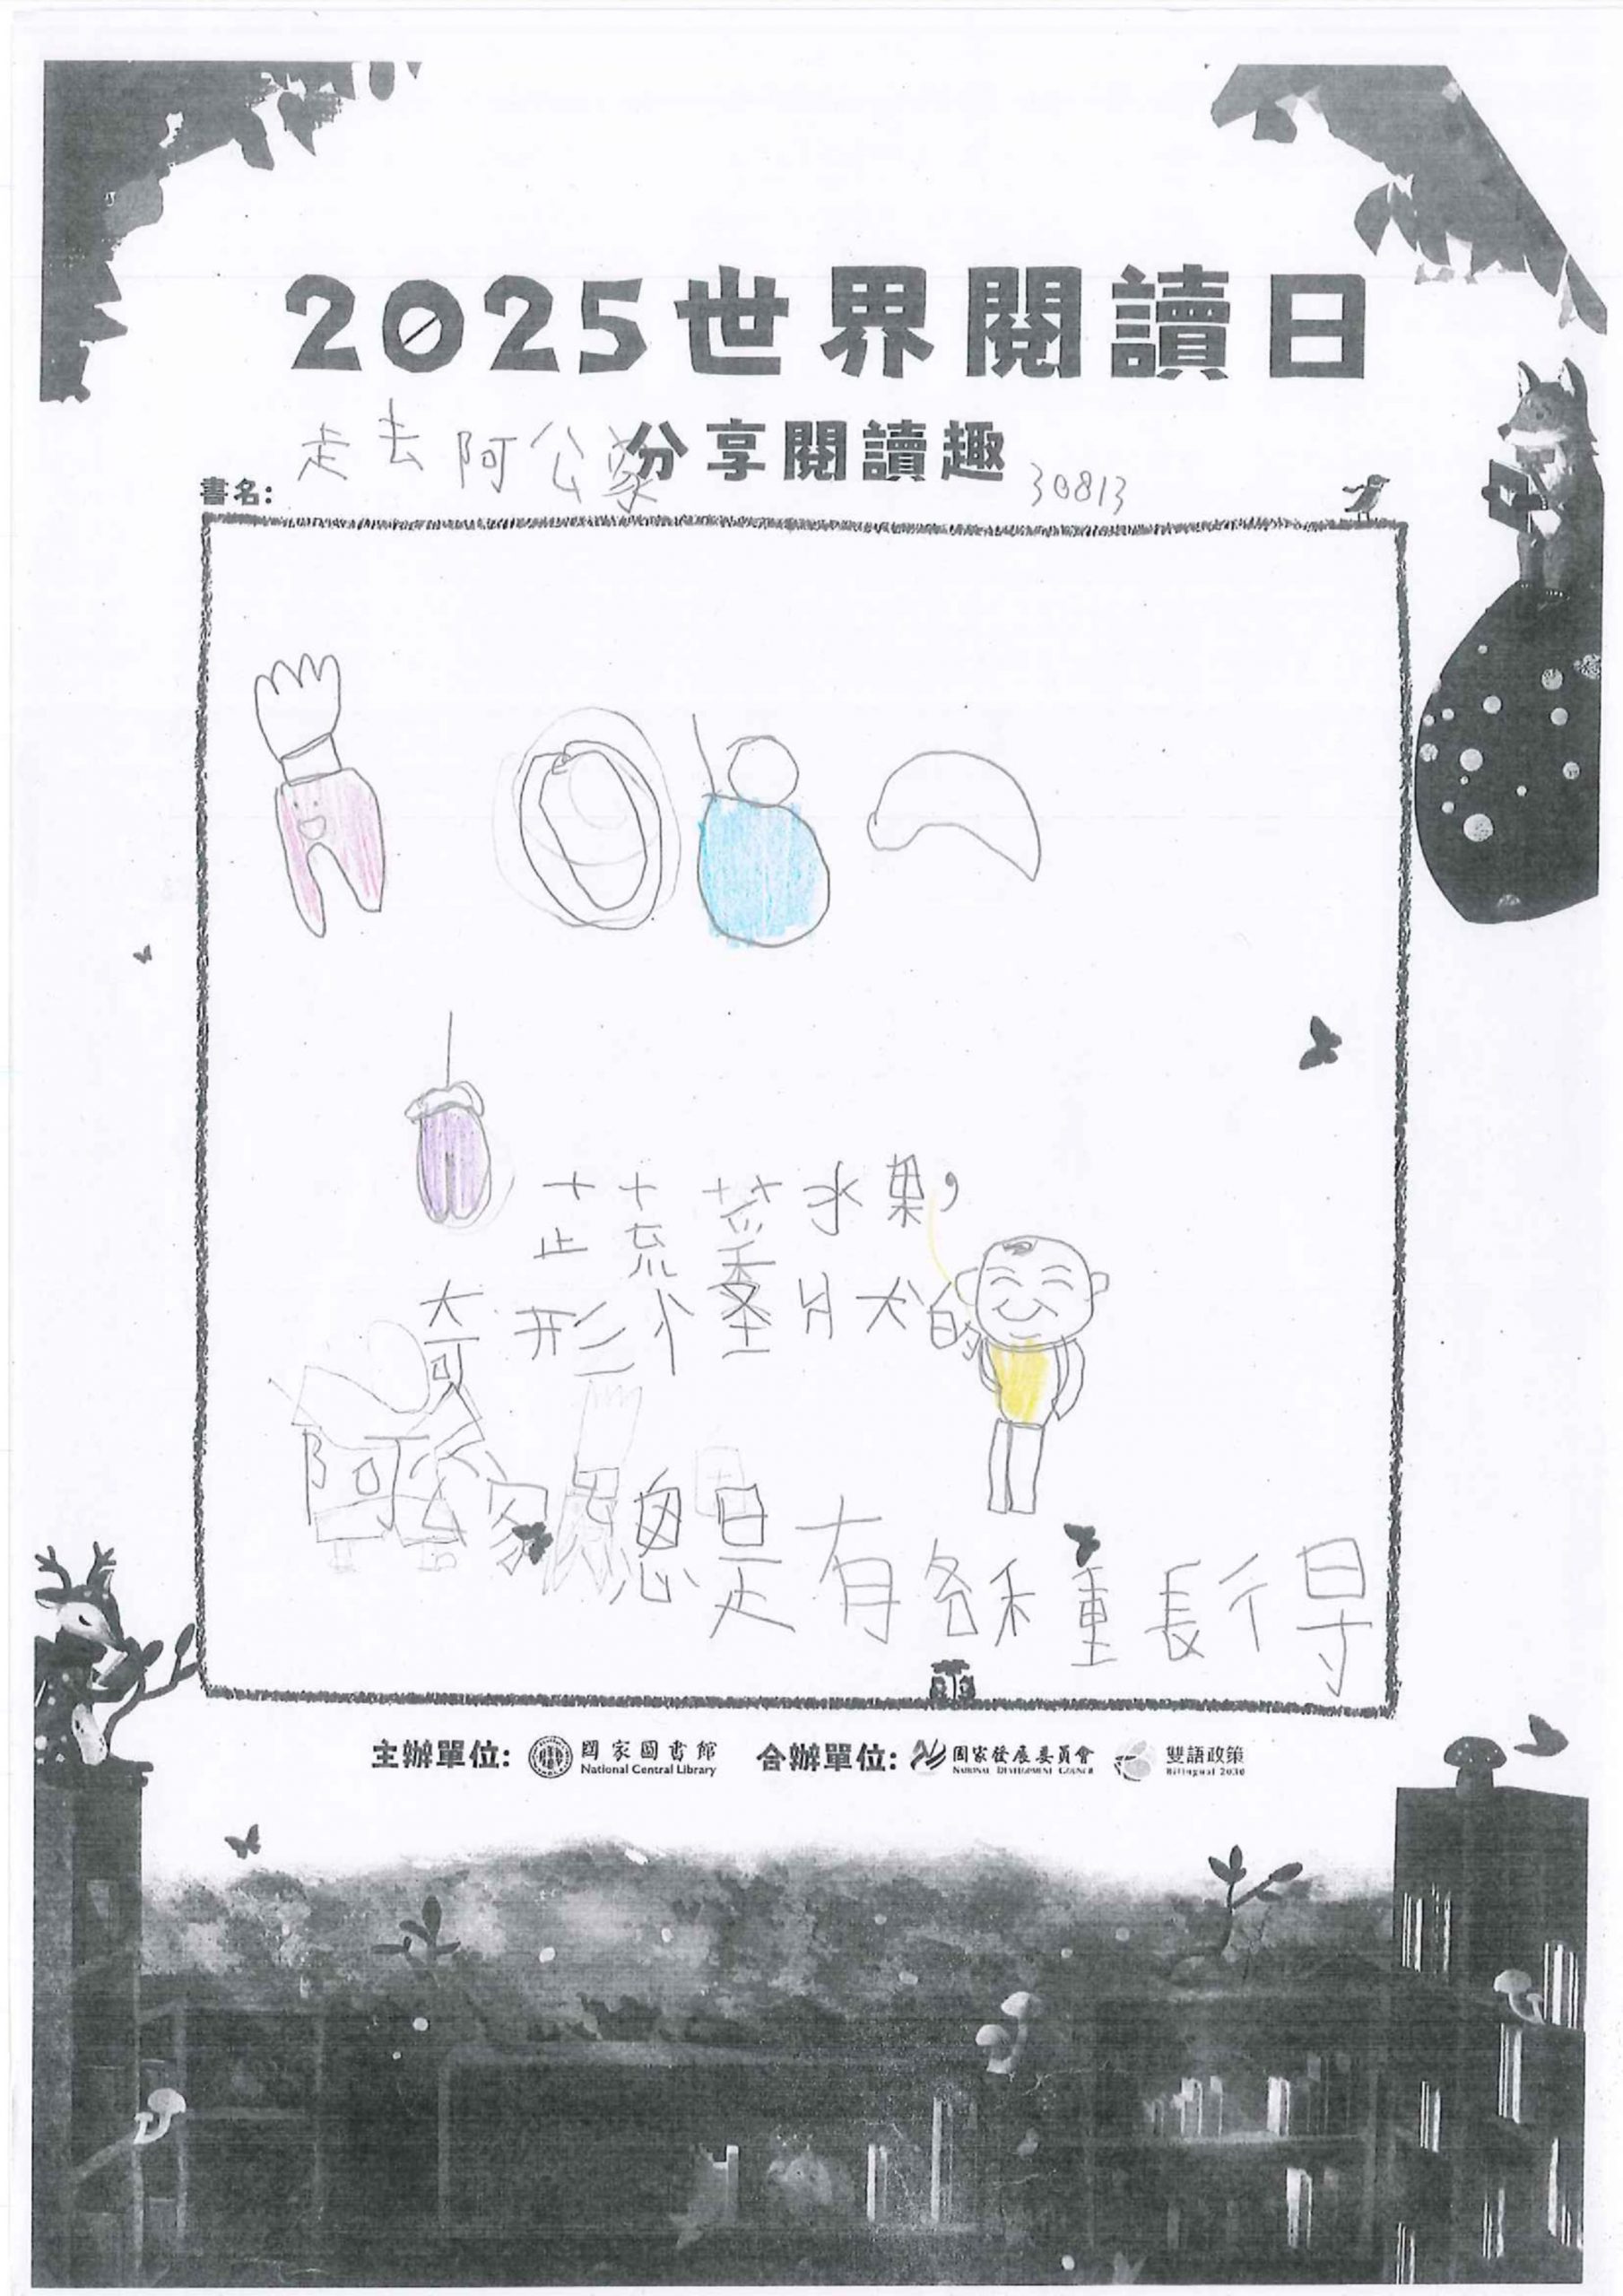 2025世界閱讀日
分享閱讀趣
書名: 走去阿公家 30813
蔬菜水果,
奇形怪狀的
阿公家總是有各種長得
主辦單位: 國家圖書館 National Central Library 合辦單位: 國家發展委員會 NATIONAL DEVELOPMENT COUNCIL 雙語政策 Bilingual 2030